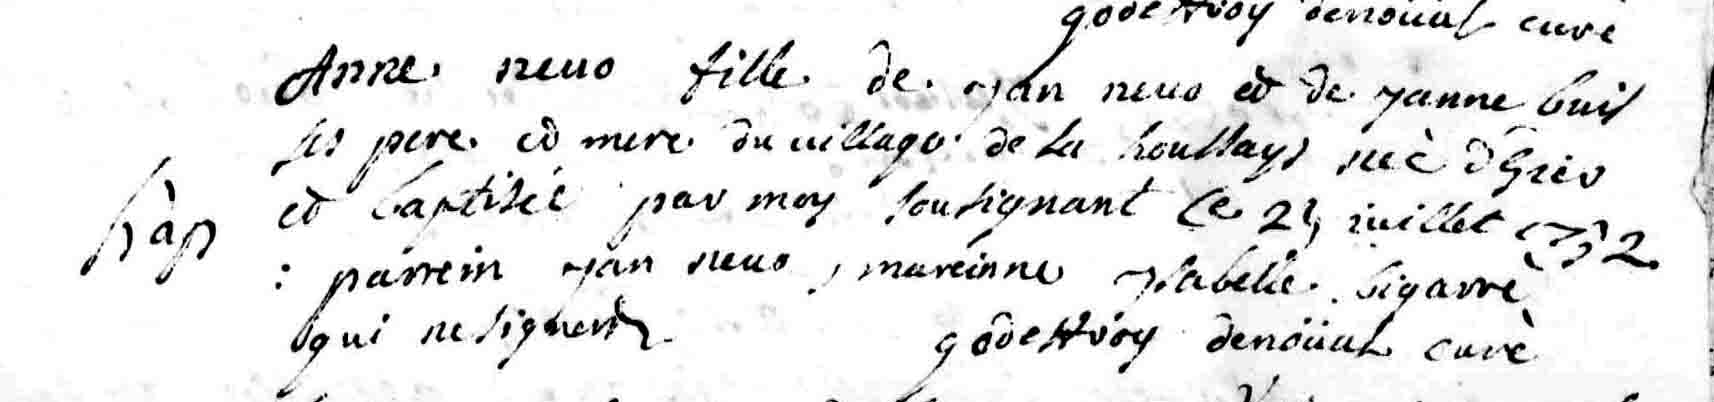 godeffroy denoüal curé
Anne neuo fille de yan neuo et de yanne buis
ses pere et mere du village de la houssays née d'hier
bap
et baptisée par moy sousignant le 25 juillet 1732
: parrein yan neuo, mareinne ysabelle bigarré
qui ne signent
godeffroy denoüal curè